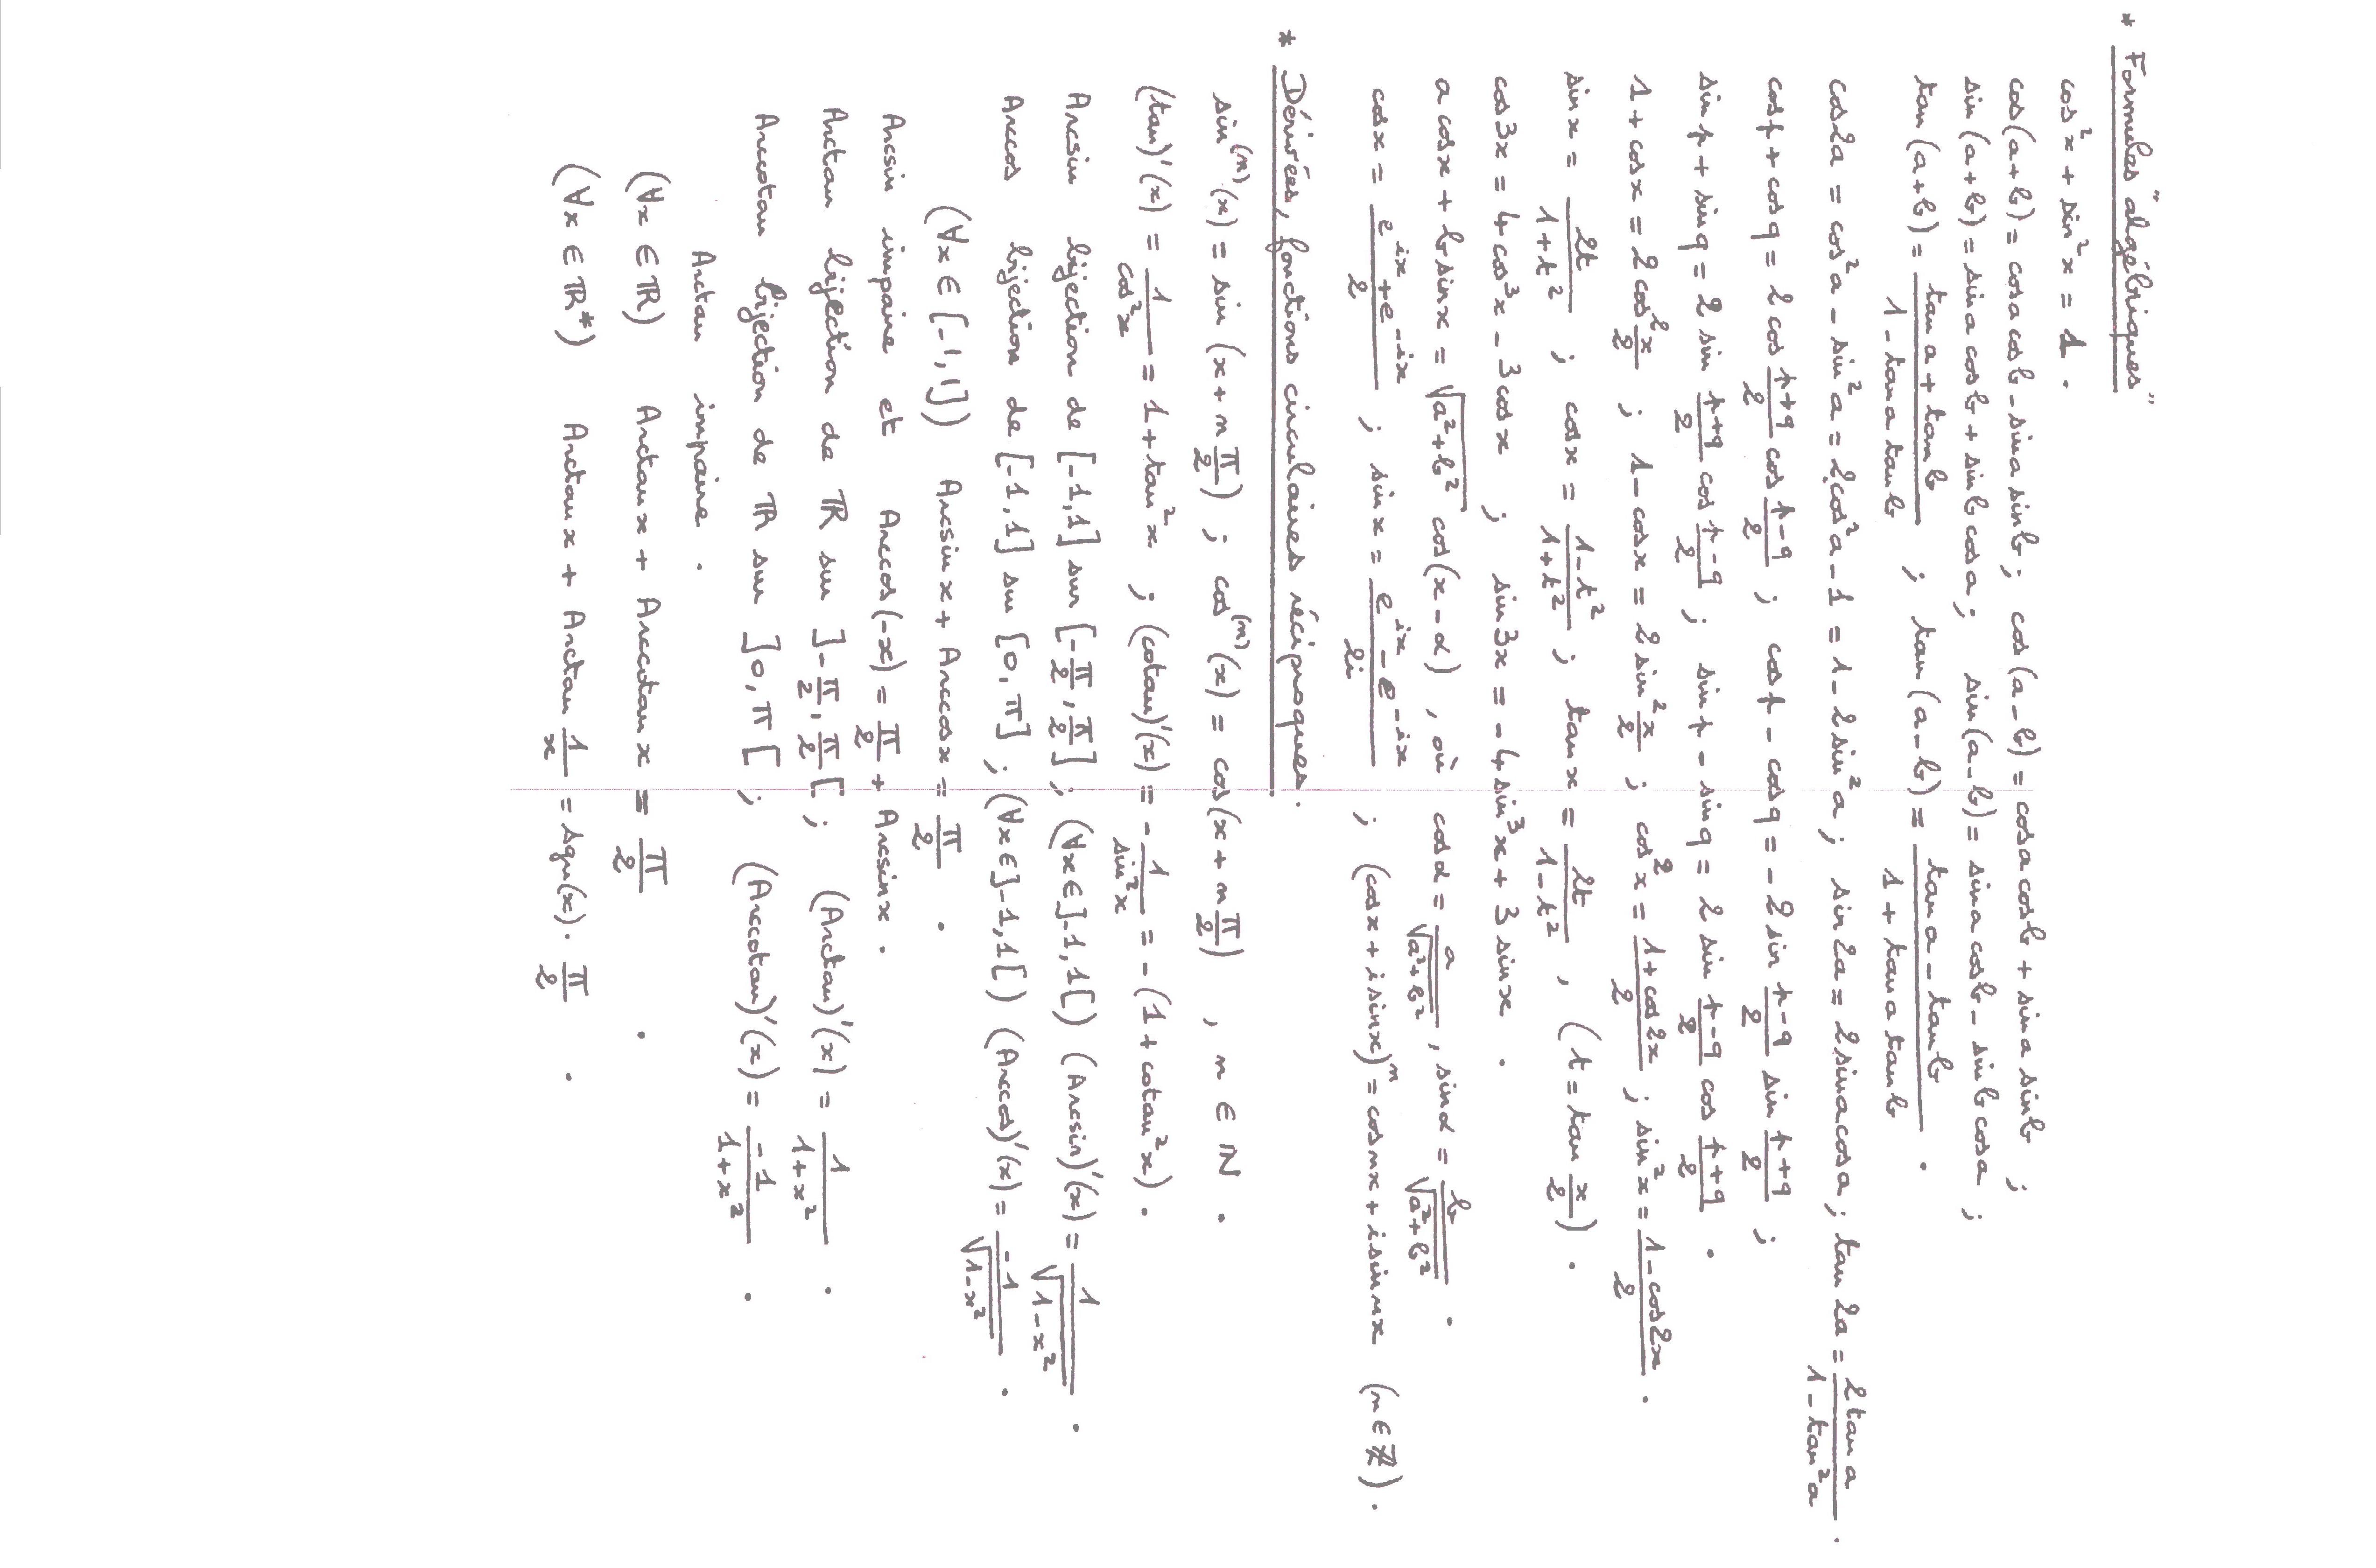 * Formules "algébriques"
cos²x + sin²x = 1.
cos(a+b) = cosa cosb - sina sinb ; cos(a-b) = cosa cosb + sina sinb ;
sin(a+b) = sina cosb + sinb cosa ; sin(a-b) = sina cosb - sinb cosa ;
tan(a+b) = (tan a + tan b)/(1 - tan a tan b) ; tan(a-b) = (tan a - tan b)/(1 + tan a tan b) .
cos2a = cos²a - sin²a = 2cos²a - 1 = 1 - 2sin²a ; sin2a = 2sinacosa ; tan 2a = (2 tan a)/(1 - tan²a) .
cosp + cosq = 2 cos (p+q)/2 cos (p-q)/2 ; cosp - cosq = -2 sin (p-q)/2 sin (p+q)/2 ;
sinp + sinq = 2 sin (p+q)/2 cos (p-q)/2 ; sinp - sinq = 2 sin (p-q)/2 cos (p+q)/2 .
1 + cosx = 2 cos² x/2 ; 1 - cosx = 2 sin² x/2 ; cos²x = (1 + cos2x)/2 ; sin²x = (1 - cos2x)/2 .
sinx = 2t/(1+t²) ; cosx = (1-t²)/(1+t²) ; tanx = 2t/(1-t²) , (t = tan x/2) .
cos3x = 4cos³x - 3cosx ; sin3x = -4sin³x + 3sinx .
a cosx + b sinx = √(a²+b²) cos(x-α) , où cosα = a/√(a²+b²) , sinα = b/√(a²+b²) .
cosx = (e^(ix) + e^(-ix))/2 ; sinx = (e^(ix) - e^(-ix))/2i ; (cosx + i sinx)ⁿ = cosnx + i sinnx (n ∈ ℤ) .
* Dérivées, fonctions circulaires réciproques.
sin⁽ⁿ⁾(x) = sin (x + n π/2) ; cos⁽ⁿ⁾(x) = cos(x + n π/2) , n ∈ ℕ .
(tan)'(x) = 1/cos²x = 1 + tan²x ; (cotan)'(x) = -1/sin²x = -(1 + cotan²x) .
Arcsin bijection de [-1,1] sur [-π/2, π/2] ; (∀x∈]-1,1[) (Arcsin)'(x) = 1/√(1-x²) .
Arccos bijection de [-1,1] sur [0, π] ; (∀x∈]-1,1[) (Arccos)'(x) = -1/√(1-x²) .
(∀x ∈ [-1,1]) Arcsin x + Arccos x = π/2 .
Arcsin impaire et Arccos(-x) = π/2 + Arcsin x .
Arctan bijection de ℝ sur ]-π/2, π/2[ ; (Arctan)'(x) = 1/(1+x²) .
Arccotan bijection de ℝ sur ]0, π[ ; (Arccotan)'(x) = -1/(1+x²) .
Arctan impaire .
(∀x ∈ ℝ) Arctan x + Arccotan x = π/2 .
(∀x ∈ ℝ*) Arctan x + Arctan 1/x = sgn(x) . π/2 .